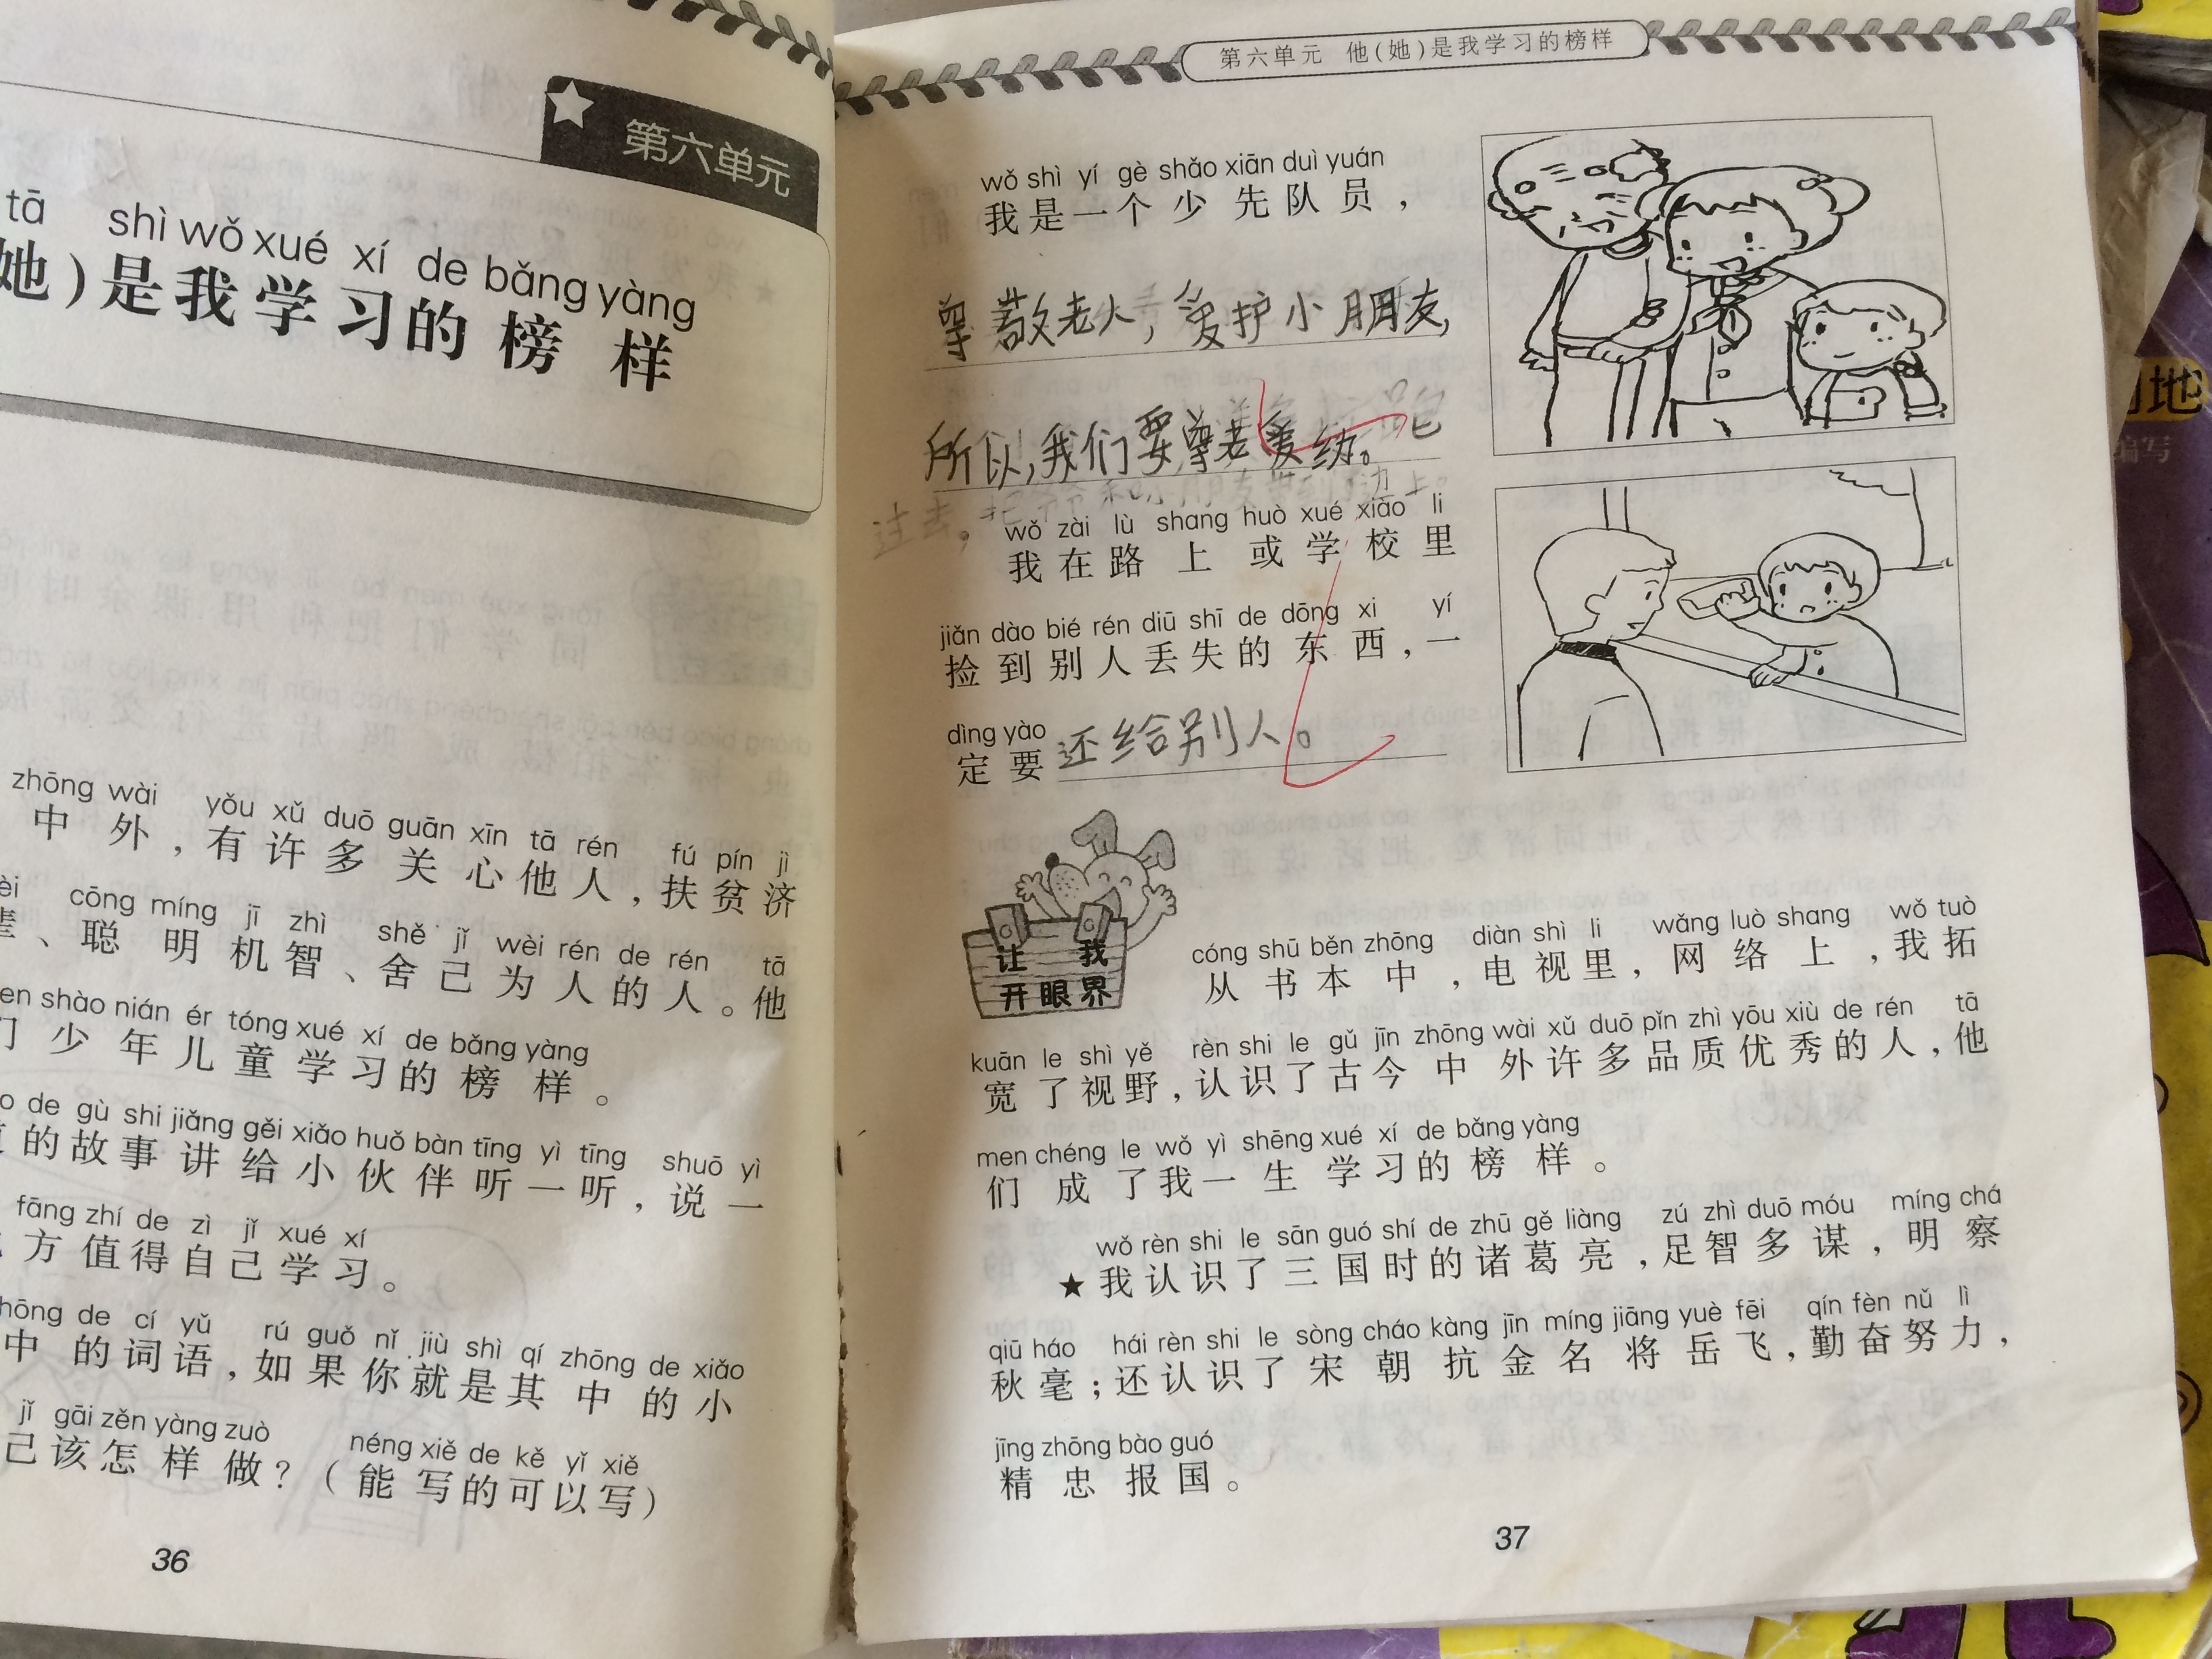 第六单元
tā shì wǒ xué xí de bǎng yàng
她)是我学习的榜样
zhōng wài yǒu xǔ duō guān xīn tā rén fú pín jì
中外,有许多关心他人,扶贫济
cōng míng jī zhì shě jǐ wèi rén de rén tā
、聪明机智、舍己为人的人。他
shào nián ér tóng xué xí de bǎng yàng
们少年儿童学习的榜样。
de gù shi jiǎng gěi xiǎo huǒ bàn tīng yì tīng shuō yì
的故事讲给小伙伴听一听,说一
fāng zhí de zì jǐ xué xí
方值得自己学习。
zhōng de cí yǔ rú guǒ nǐ jiù shì qí zhōng de xiǎo
中的词语,如果你就是其中的小
jǐ gāi zěn yàng zuò néng xiě de kě yǐ xiě
己该怎样做?(能写的可以写)
36
第六单元 他(她)是我学习的榜样
wǒ shì yí gè shǎo xiān duì yuán
我是一个少先队员,
尊敬老人,爱护小朋友,
所以,我们要尊老爱幼。
过去。
wǒ zài lù shang huò xué xiào li
我在路上或学校里
jiǎn dào bié rén diū shī de dōng xi yí
捡到别人丢失的东西,一
dìng yào
定要还给别人。
让我
开眼界
cóng shū běn zhōng diàn shì li wǎng luò shang wǒ tuò
从书本中,电视里,网络上,我拓
kuān le shì yě rèn shi le gǔ jīn zhōng wài xǔ duō pǐn zhì yōu xiù de rén tā
宽了视野,认识了古今中外许多品质优秀的人,他
men chéng le wǒ yì shēng xué xí de bǎng yàng
们成了我一生学习的榜样。
wǒ rèn shi le sān guó shí de zhū gě liàng zú zhì duō móu míng chá
★我认识了三国时的诸葛亮,足智多谋,明察
qiū háo hái rèn shi le sòng cháo kàng jīn míng jiāng yuè fēi qín fèn nǔ lì
秋毫;还认识了宋朝抗金名将岳飞,勤奋努力,
jīng zhōng bào guó
精忠报国。
37
地
编写